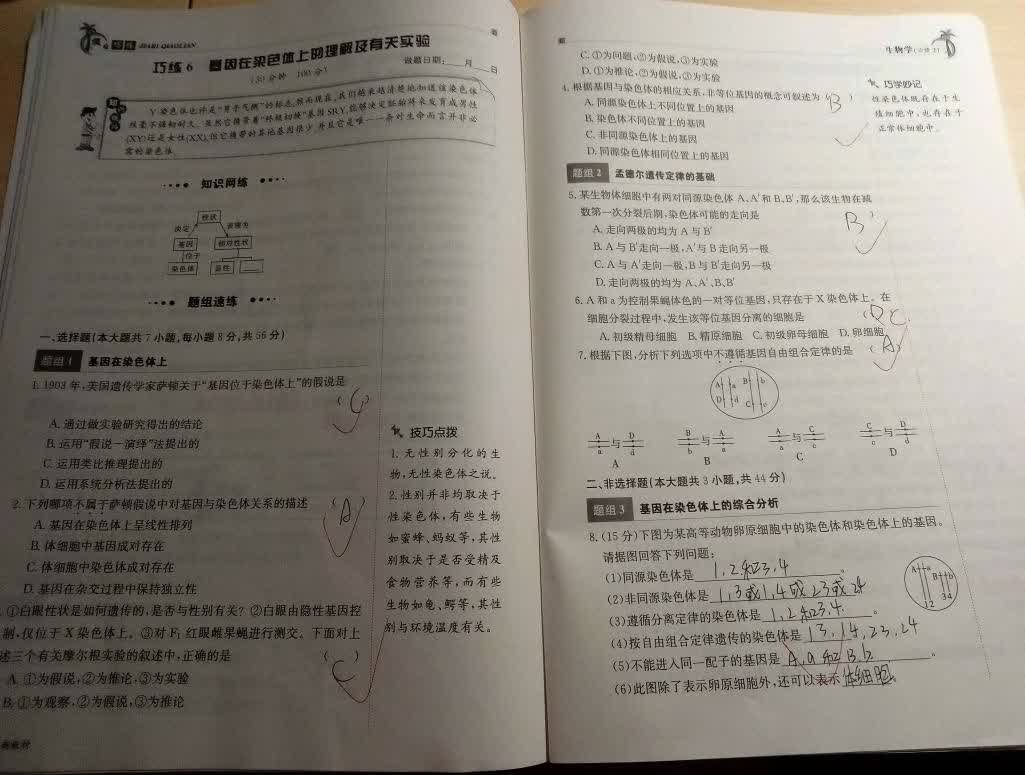 JIARI QIAOLIAN
巧练 6 基因在染色体上的理解及有关实验
(30 分钟 100 分)
做题日期:___月___日
Y 染色体也许是“男子气概”的标志,然而现在,我们越来越清楚地知道该染色体
(XY)还是女性(XX),但它携带的其他基因很少,并且它是唯一一条对生命而言并非必
需的染色体。
知识网络
性状
决定
表现为
基因
相对性状
位于
染色体
显性
题组速练
一、选择题(本大题共 7 小题,每小题 8 分,共 56 分)
题组 1 基因在染色体上
1. 1903 年,美国遗传学家萨顿关于“基因位于染色体上”的假说是
( C )
A. 通过做实验研究得出的结论
B. 运用“假说－演绎”法提出的
C. 运用类比推理提出的
D. 运用系统分析法提出的
2. 下列哪项不属于萨顿假说中对基因与染色体关系的描述
( A )
A. 基因在染色体上呈线性排列
B. 体细胞中基因成对存在
C. 体细胞中染色体成对存在
D. 基因在杂交过程中保持独立性
①白眼性状是如何遗传的,是否与性别有关? ②白眼由隐性基因控
制,仅位于 X 染色体上。③对 F₁ 红眼雌果蝇进行测交。下面对上
述三个有关摩尔根实验的叙述中,正确的是
( C )
A. ①为假说,②为推论,③为实验
B. ①为观察,②为假说,③为推论
技巧点拨
1. 无性别分化的生
物,无性染色体之说。
2. 性别并非均取决于
性染色体,有些生物
如蜜蜂、蚂蚁等,其性
别取决于是否受精及
食物营养等,而有些
生物如龟、鳄等,其性
别与环境温度有关。
生物学(必修 2)
C. ①为问题,②为假说,③为实验
D. ①为推论,②为假说,③为实验
4. 根据基因与染色体的相应关系,非等位基因的概念可叙述为
B
A. 同源染色体上不同位置上的基因
B. 染色体不同位置上的基因
C. 非同源染色体上的基因
D. 同源染色体相同位置上的基因
巧学妙记
性染色体既存在于生
殖细胞中,也存在于
正常体细胞中。
题组 2 孟德尔遗传定律的基础
5. 某生物体细胞中有两对同源染色体 A、A′和 B、B′,那么该生物在减
数第一次分裂后期,染色体可能的走向是
B
A. 走向两极的均为 A 与 B′
B. A 与 B′走向一极,A′与 B 走向另一极
C. A 与 A′走向一极,B 与 B′走向另一极
D. 走向两极的均为 A、A′、B、B′
6. A 和 a 为控制果蝇体色的一对等位基因,只存在于 X 染色体上。在
细胞分裂过程中,发生该等位基因分离的细胞是
A. 初级精母细胞 B. 精原细胞 C. 初级卵母细胞 D. 卵细胞
7. 根据下图,分析下列选项中不遵循基因自由组合定律的是
( A )
A a B b
D d C c
A a 与 D d
B b 与 A a
A a 与 C c
C c 与 D d
A B C D
二、非选择题(本大题共 3 小题,共 44 分)
题组 3 基因在染色体上的综合分析
8. (15 分)下图为某高等动物卵原细胞中的染色体和染色体上的基因。
请据图回答下列问题:
(1)同源染色体是 1,2 和 3,4 。
(2)非同源染色体是 1,3 或 1,4 或 2,3 或 24
(3)遵循分离定律的染色体是 1,2 和 3 4 。
(4)按自由组合定律遗传的染色体是 1 3, 1 4, 2 3, 2 4
(5)不能进入同一配子的基因是 A,a 和 B,b 。
(6)此图除了表示卵原细胞外,还可以表示 体细胞 。
A a
B b
1 2 3 4